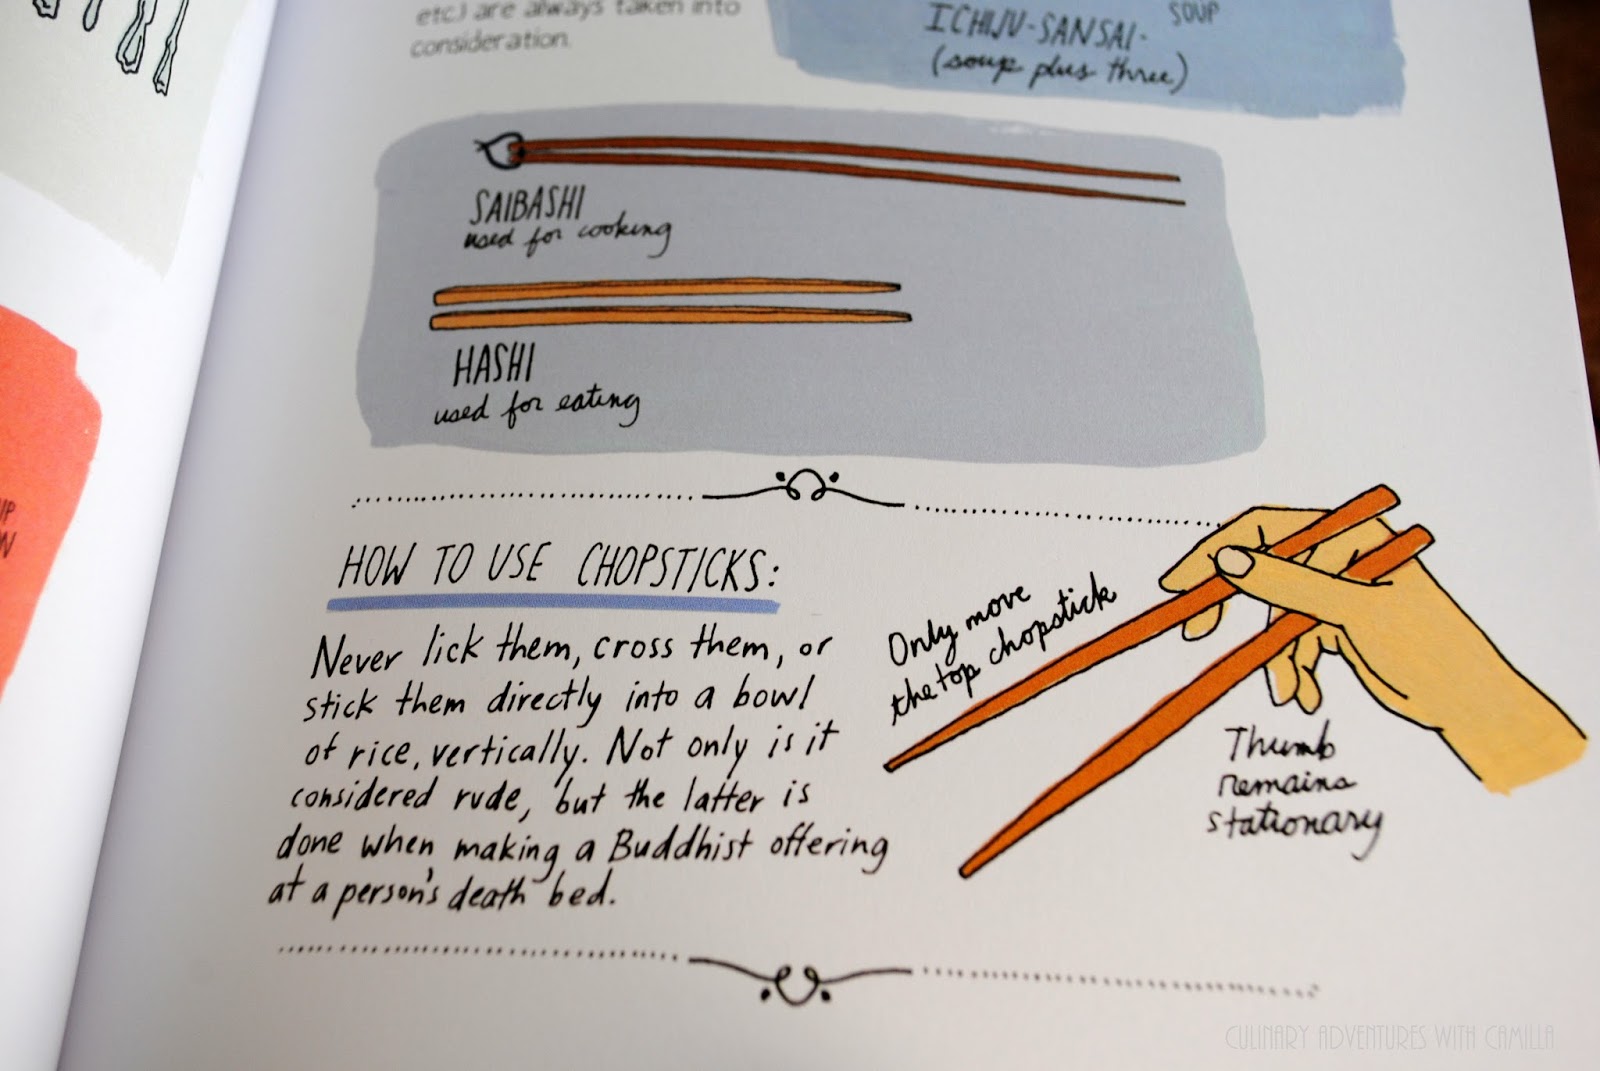 etc.) are always taken into
consideration.
SOUP
ICHIJU-SANSAI-
(soup plus three)
SAIBASHI
used for cooking
HASHI
used for eating
HOW TO USE CHOPSTICKS:
Never lick them, cross them, or
stick them directly into a bowl
of rice, vertically. Not only is it
considered rude, but the latter is
done when making a Buddhist offering
at a person's death bed.
Only move
the top chopstick
Thumb
remains
stationary
CULINARY ADVENTURES WITH CAMILLA